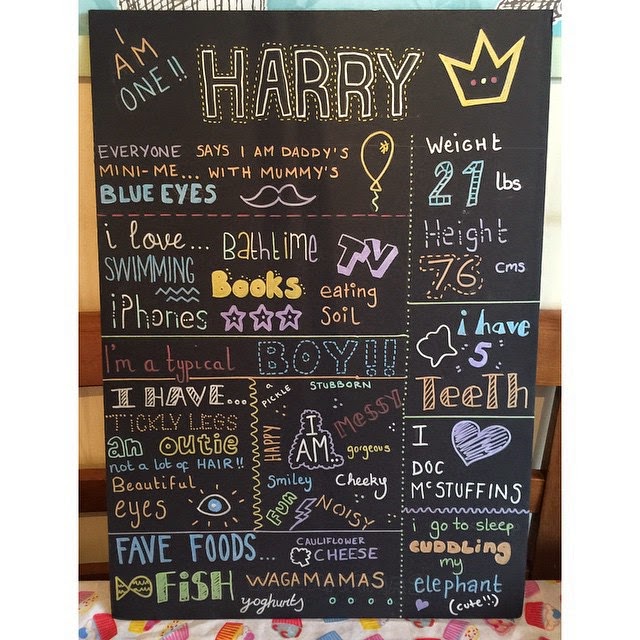 I AM ONE!!
HARRY
EVERYONE SAYS I AM DADDY'S
MINI-ME... WITH MUMMY'S
BLUE EYES
WEIGHT
21 lbs
Height
76 cms
i love... BATHTIME TV
SWIMMING BOOKS eating
iPHONES soil
I'm a typical BOY!!
i have
5
TEETH
I HAVE...
TICKLY LEGS
an OUTIE
not a lot of HAIR!!
Beautiful
eyes
a PICKLE STUBBORN
HAPPY I AM MESSY
gorgeous
Smiley Cheeky
FUN NOISY
I
DOC
McSTUFFINS
FAVE FOODS... CAULIFLOWER
CHEESE
FISH WAGAMAMAS
yoghurts
i go to sleep
CUDDLING
my
elephant
(cute!!!)